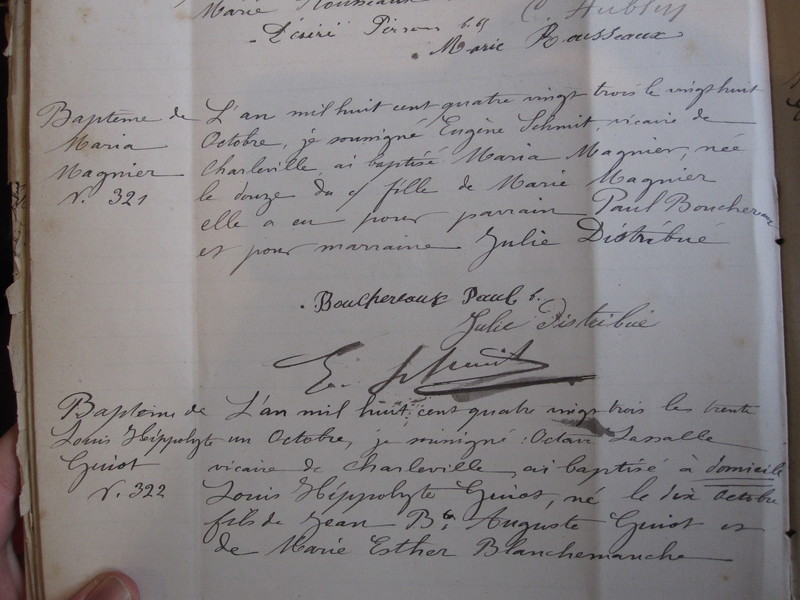 Marie Rousseaux C. Aubley
Désiré Pierson
Marie Rousseaux
Baptême de
Maria
Magnier
N. 321
L'an mil huit cent quatre vingt trois le vingt huit
Octobre, je sousigné Eugène Schmit, vicaire de
Charleville, ai baptisé Maria Magnier, née
le douze du c/ fille de Marie Magnier
elle a eu pour parrain Paul Bouchereaux
et pour marraine Julie Distribué
Bouchereaux Paul
Julie Distribué
E. Schmit
Baptême de
Louis Hippolyte
Guiot
N. 322
L'an mil huit cent quatre vingt trois les trente
un Octobre, je sousigné : Octave Lassalle
vicaire de Charleville, ai baptisé à domicile
Louis Hippolyte Guiot, né le dix octobre
fils de Jean Bte Auguste Guiot et
de Marie Esther Blanchemanche